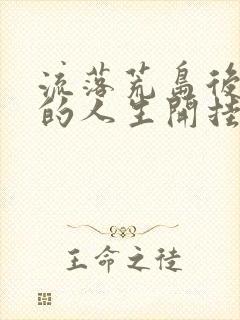 流落荒島後
的人生開挂
王命之徒